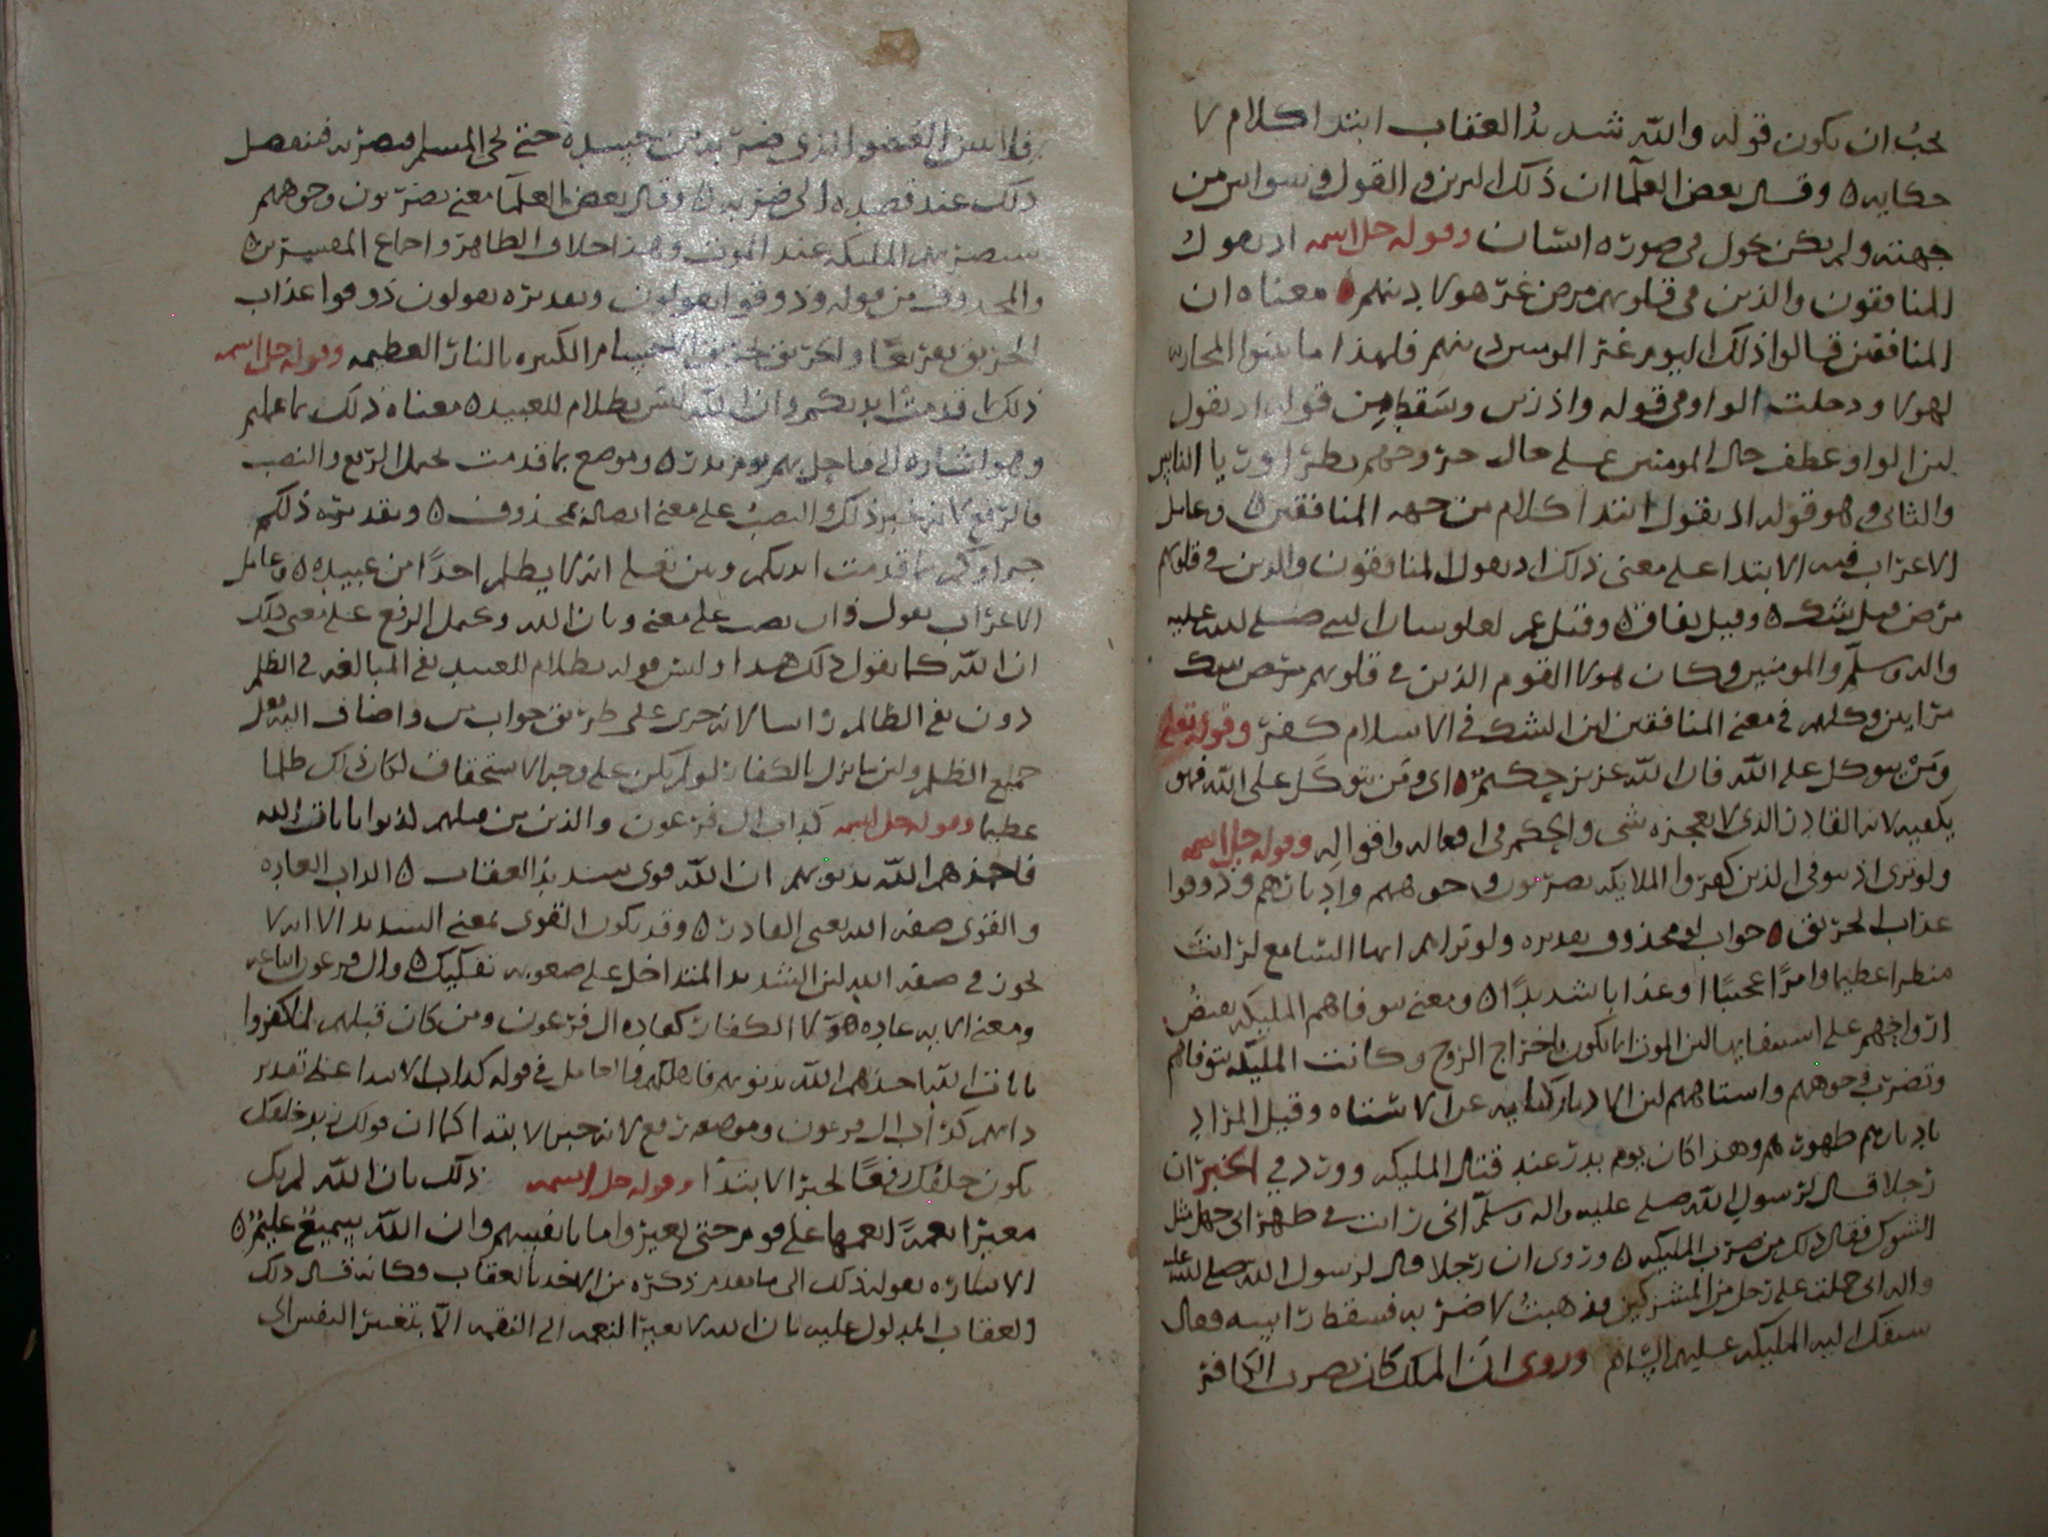 يجب ان يكون قوله والله شديد العقاب ابتدا كلام لا
حكايه ٥ وقال بعض العلما ان ذلك التزين والقول وسواس من
جهته ولم يكن يحول في صورة انسان وقوله جل اسمه اذ يقول
المنافقون والذين في قلوبهم مرض غر هولا دينهم ٥ معناه ان
المنافقين قالوا ذلك اليوم غر المومنين دينهم فلهذا ما بنوا المحاربه
لهولا ودخلت الواو في قوله واذ زين وسقط من قوله اذ يقول
لان الواو عطف حال المومنين على حال خروجهم بطرا وريا الناس
والثاني وهو قوله اذ يقول ابتدا كلام من جهه المنافقين ٥ وعامل
الاعراب فيه الابتدا على معنى ذلك اذ يقول المنافقون والذين في قلوبهم
مرض قيل شك ٥ وقيل نفاق ٥ وقيل صلى الله عليه
واله وسلم والمومنين وكان هولا القوم الذين في قلوبهم مرض شك
مرايين وكلهم في معنى المنافقين لان الشك في الاسلام كفر وقوله تعلى
ومن يتوكل على الله فان الله عزيز حكيم ٥ اي ومن يتوكل على الله فهو
يكفيه لانه القادر الذي لا يعجزه شي والحكيم في افعاله واقواله وقوله جل اسمه
ولو ترى اذ يتوفى الذين كفروا الملايكه يضربون وجوههم وادبارهم وذوقوا
عذاب الحريق ٥ جواب لو محذوف تقديره ولو تراهم ايها السامع لرايت
منظرا عظيما وامرا عجيبا او عذابا شديدا ٥ ومعنى يتوفاهم المليكه بقبض
ارواحهم على استيفايها لان الموت انما يكون باخراج الروح وكانت المليكه تتوفاهم
وتضرب وجوههم واستاههم لان الادبار كنايه عن الاستاه وقيل المراد
بادبارهم ظهورهم وهذا كان يوم بدر عند قتال المليكه وورد في الخبر ان
رجلا قال لرسول الله صلى عليه واله وسلم اني رايت في ظهر ابي جهل مثل
الشوك فقال ذلك من ضرب المليكه ٥ وروى ان رجلا قال لرسول الله صلى الله عليه
واله اني حملت على رجل من المشركين فذهبت لاضربه فسقط راسه فقال
سبقك اليه المليكه عليهم السلام وروى ان الملك كان يضرب الكافر
العضو الذي حتى يجي المسلم فيضربه فينفصل
ذلك عند قصده الى ضربه ٥ وقال بعض العلما معنى يضربون وجوههم
ستضربهم المليكه عند الموت وهذا خلاف الظاهر واجماع المفسرين ٥
والمحذوف من قوله وذوقوا يقولون وتقديره يقولون ذوقوا عذاب
الحريق الكبيره بالنار العظيمه وقوله جل اسمه
ذلك بما قدمت ايديكم وان الله ليس بظلام للعبيد ٥ معناه ذلك بما عملتم
وهو اشاره الى ما حل بهم يوم بدر ٥ وموضع بما قدمت يحتمل الرفع والنصب
فالرفع لانه خبر ذلك والنصب على معنى اتصاله بمحذوف ٥ وتقديره ذلكم
جزاوكم بما قدمت ايديكم وبان تعلم انه لا يظلم احدا من عبيده ٥ وعامل
الاعراب نصب على معنى وبان الله ويحتمل الرفع على معنى ذلك
ان الله كما يقول ذلك هذا وليس قوله بظلام للعبيد نفي المبالغه في الظلم
دون نفي الظالم راسا لانه جرى على طريق جواب من واضاف اليه فعل
جميع الظلم ولان ما نزل بالكفار لو لم يكن على وجه الاستحقاق لكان ذلك ظلما
عظيما وقوله جل اسمه كداب ال فرعون والذين من قبلهم كذبوا بايات الله
فاخذهم الله بذنوبهم ان الله قوي شديد العقاب ٥ الداب العاده
والقوي صفه الله يعني القادر ٥ وقد يكون القوي بمعنى الشديد الا انه لا
يجوز في صفه الله لان الشديد المتداخل على صعوبه تفكيك ٥ وال فرعون اتباعه
ومعنى الايه عاده هولا الكفار كعاده ال فرعون ومن كان قبلهم لما كفروا
بايات الله اخذهم الله بذنوبهم فاهلكهم والعامل في قوله كداب الابتدا على تقدير
دابهم كداب ال فرعون وموضعه رفع لانه خبر الابتدا كما ان قولك زيد خلفك
يكون خلفك رفعا لخبر الابتدا وقوله جل اسمه ذلك بان الله لم يك
مغيرا نعمة انعمها على قوم حتى يغيروا ما بانفسهم وان الله سميع عليم ٥
الاشاره بقوله ذلك الى ما تقدم ذكره من الاخذ بالعقاب وكانه قال ذلك
العقاب المدلول عليه بان الله لا يغير النعمه الى النقمه الا بتغير النفس الى